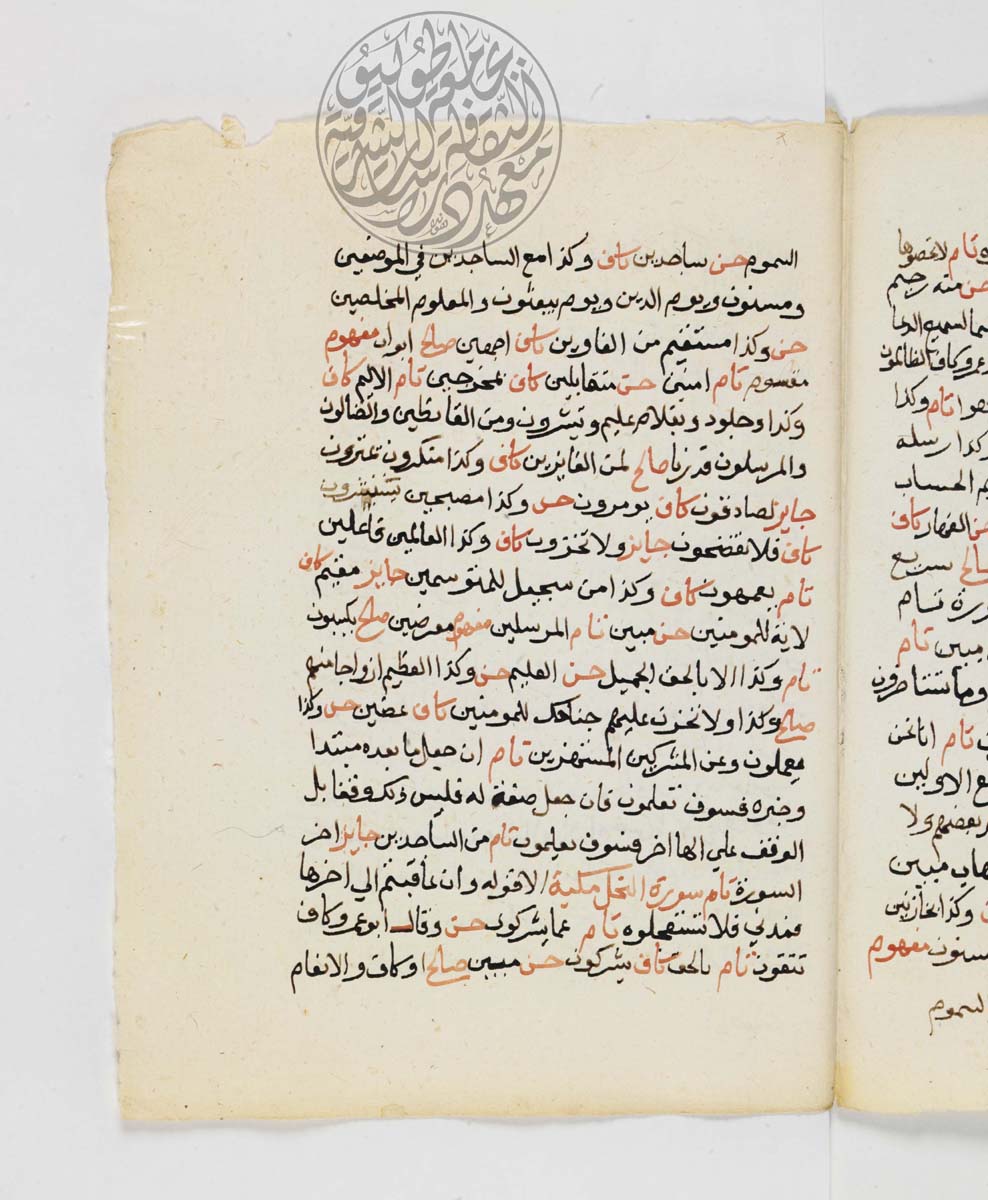 السموم حسن ساجدين كاف وكذا مع الساجدين في الموضعين
ومسنون ويوم الدين ويوم يبعثون والمعلوم المخلصين
حسن وكذا مستقيم من الغاوين كاف اجمعين صالح ابواب مفهوم
مقسوم تام امنين حسن متقابلين كاف بمخرجين تام الاليم كاف
وكذا وجلون وبغلام عليم وتبشرون ومن القانطين والضالون
والمرسلون قدرنا صالح لمن الغابرين كاف وكذا منكرون يمترون
جايز لصادقون كاف يومرون حسن وكذا مصبحين يستبشرون
كاف فلا تفضحون جايز ولا تخزون كاف وكذا العالمين فاعلين
تام يعمهون كاف وكذا من سجيل للمتوسمين جايز مقيم كاف
لاية للمومنين حسن مبين تام المرسلين مفهوم معرضين صالح يكسبون
تام وكذا الا بالحق الجميل حسن العليم حسن وكذا العظيم ازواجا منهم
صالح وكذا ولا تحزن عليهم جناحك للمومنين كاف عضين حسن وكذا
يعملون وعن المشركين المستهزين تام ان جعل ما بعده مبتدا
وخبره فسوف تعلمون فان جعل صفة له فليس ذلك وقفا بل
الوقف علي الها اخر فسوف يعلمون تام من الساجدين جايز اخر
السورة تام سورة النحل مكية الا قوله وان عاقبتم الي اخرها
فمدني فلا تستعجلوه تام عما يشركون حسن وقال ابو عمرو كاف
تتقون تام بالحق كاف يشركون حسن مبين صالح او كاف والانعام
ه تام لا تحصوها
حسن منه رحيم
السميع الدعا
عمرو كاف الظالمون
تام وكذا
وكذا رسله
الحساب
حسن القهار كاف
صالح سريع
سورة تام
مبين تام
وما تستاخرون
تام انا نحن
الاولين
بعضهم ولا
شهاب مبين
وكذا بخازنين
مسنون مفهوم
السموم
معهد دراسات الثقافة الشرقية
جامعة طوكيو